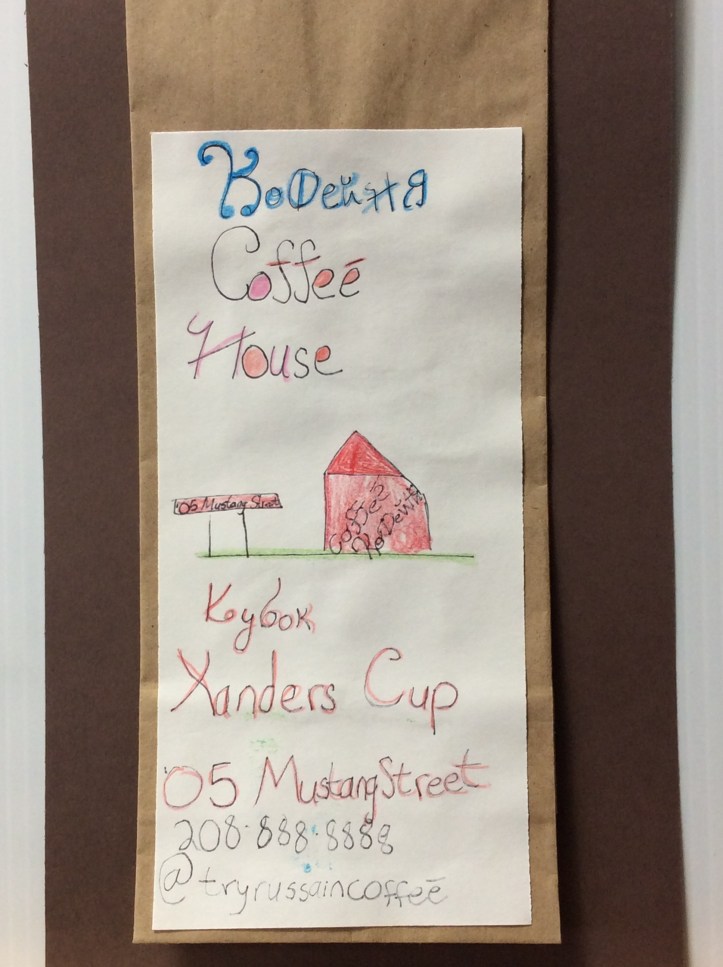 КоФейня
Coffee
House
'05 Mustang Street
Coffee
КоФейня
Кубок
Xanders Cup
'05 Mustang Street
208·888·8888
@tryrussaincoffee